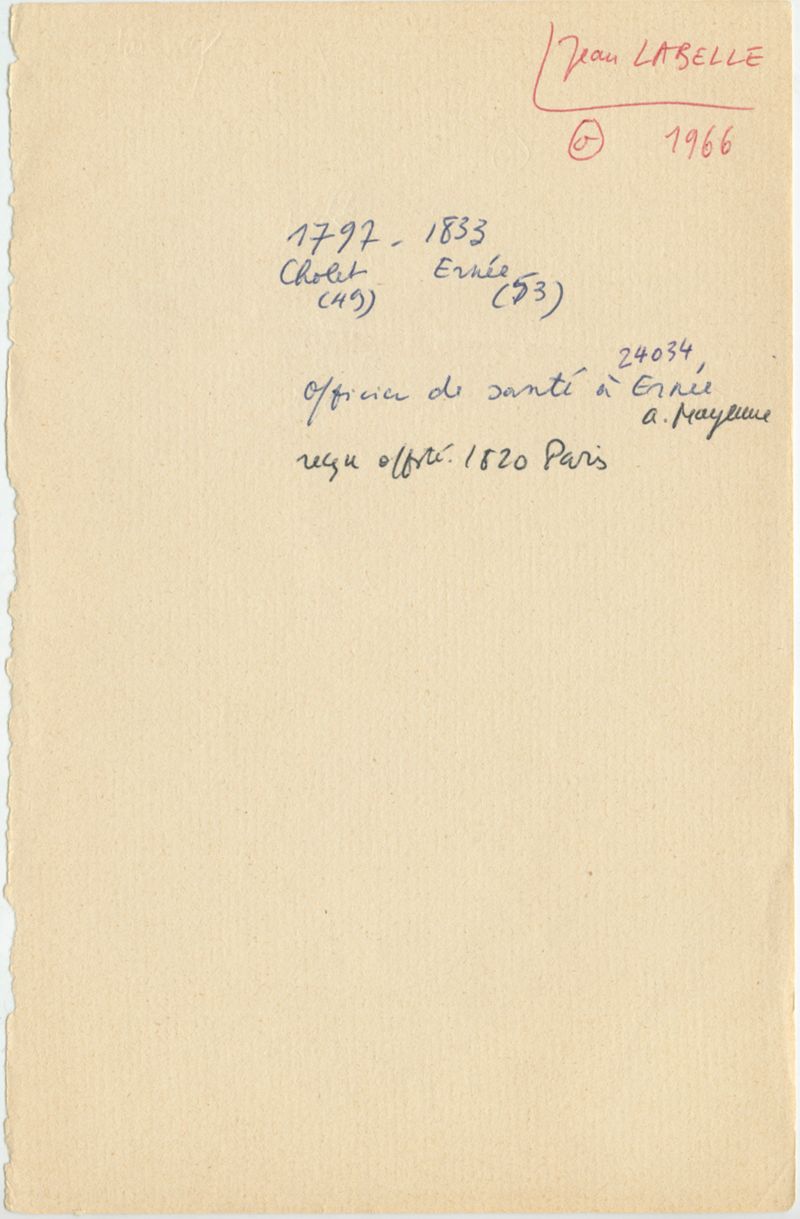 Jean LABELLE
1966
1797 - 1833
Cholet Ernée
(49) (53)
24034
Officier de santé à Ernée
a. Mayenne
reçu offsté. 1820 Paris